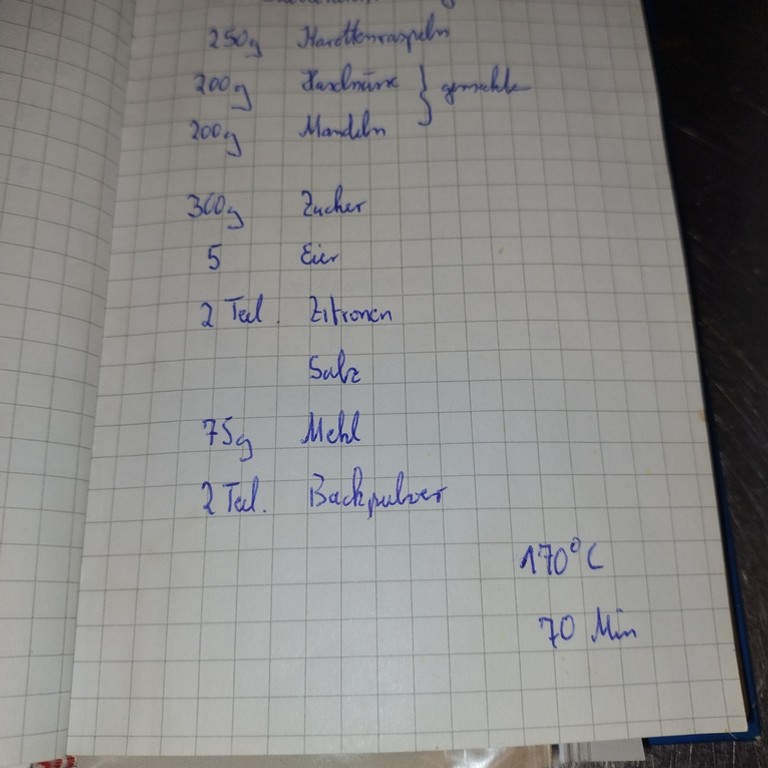 250g Karottenraspeln
200g Haselnüsse } gemahlen
200g Mandeln
300g Zucker
5 Eier
2 Teel. Zitronen
Salz
75g Mehl
2 Teel. Backpulver
170°C
70 Min